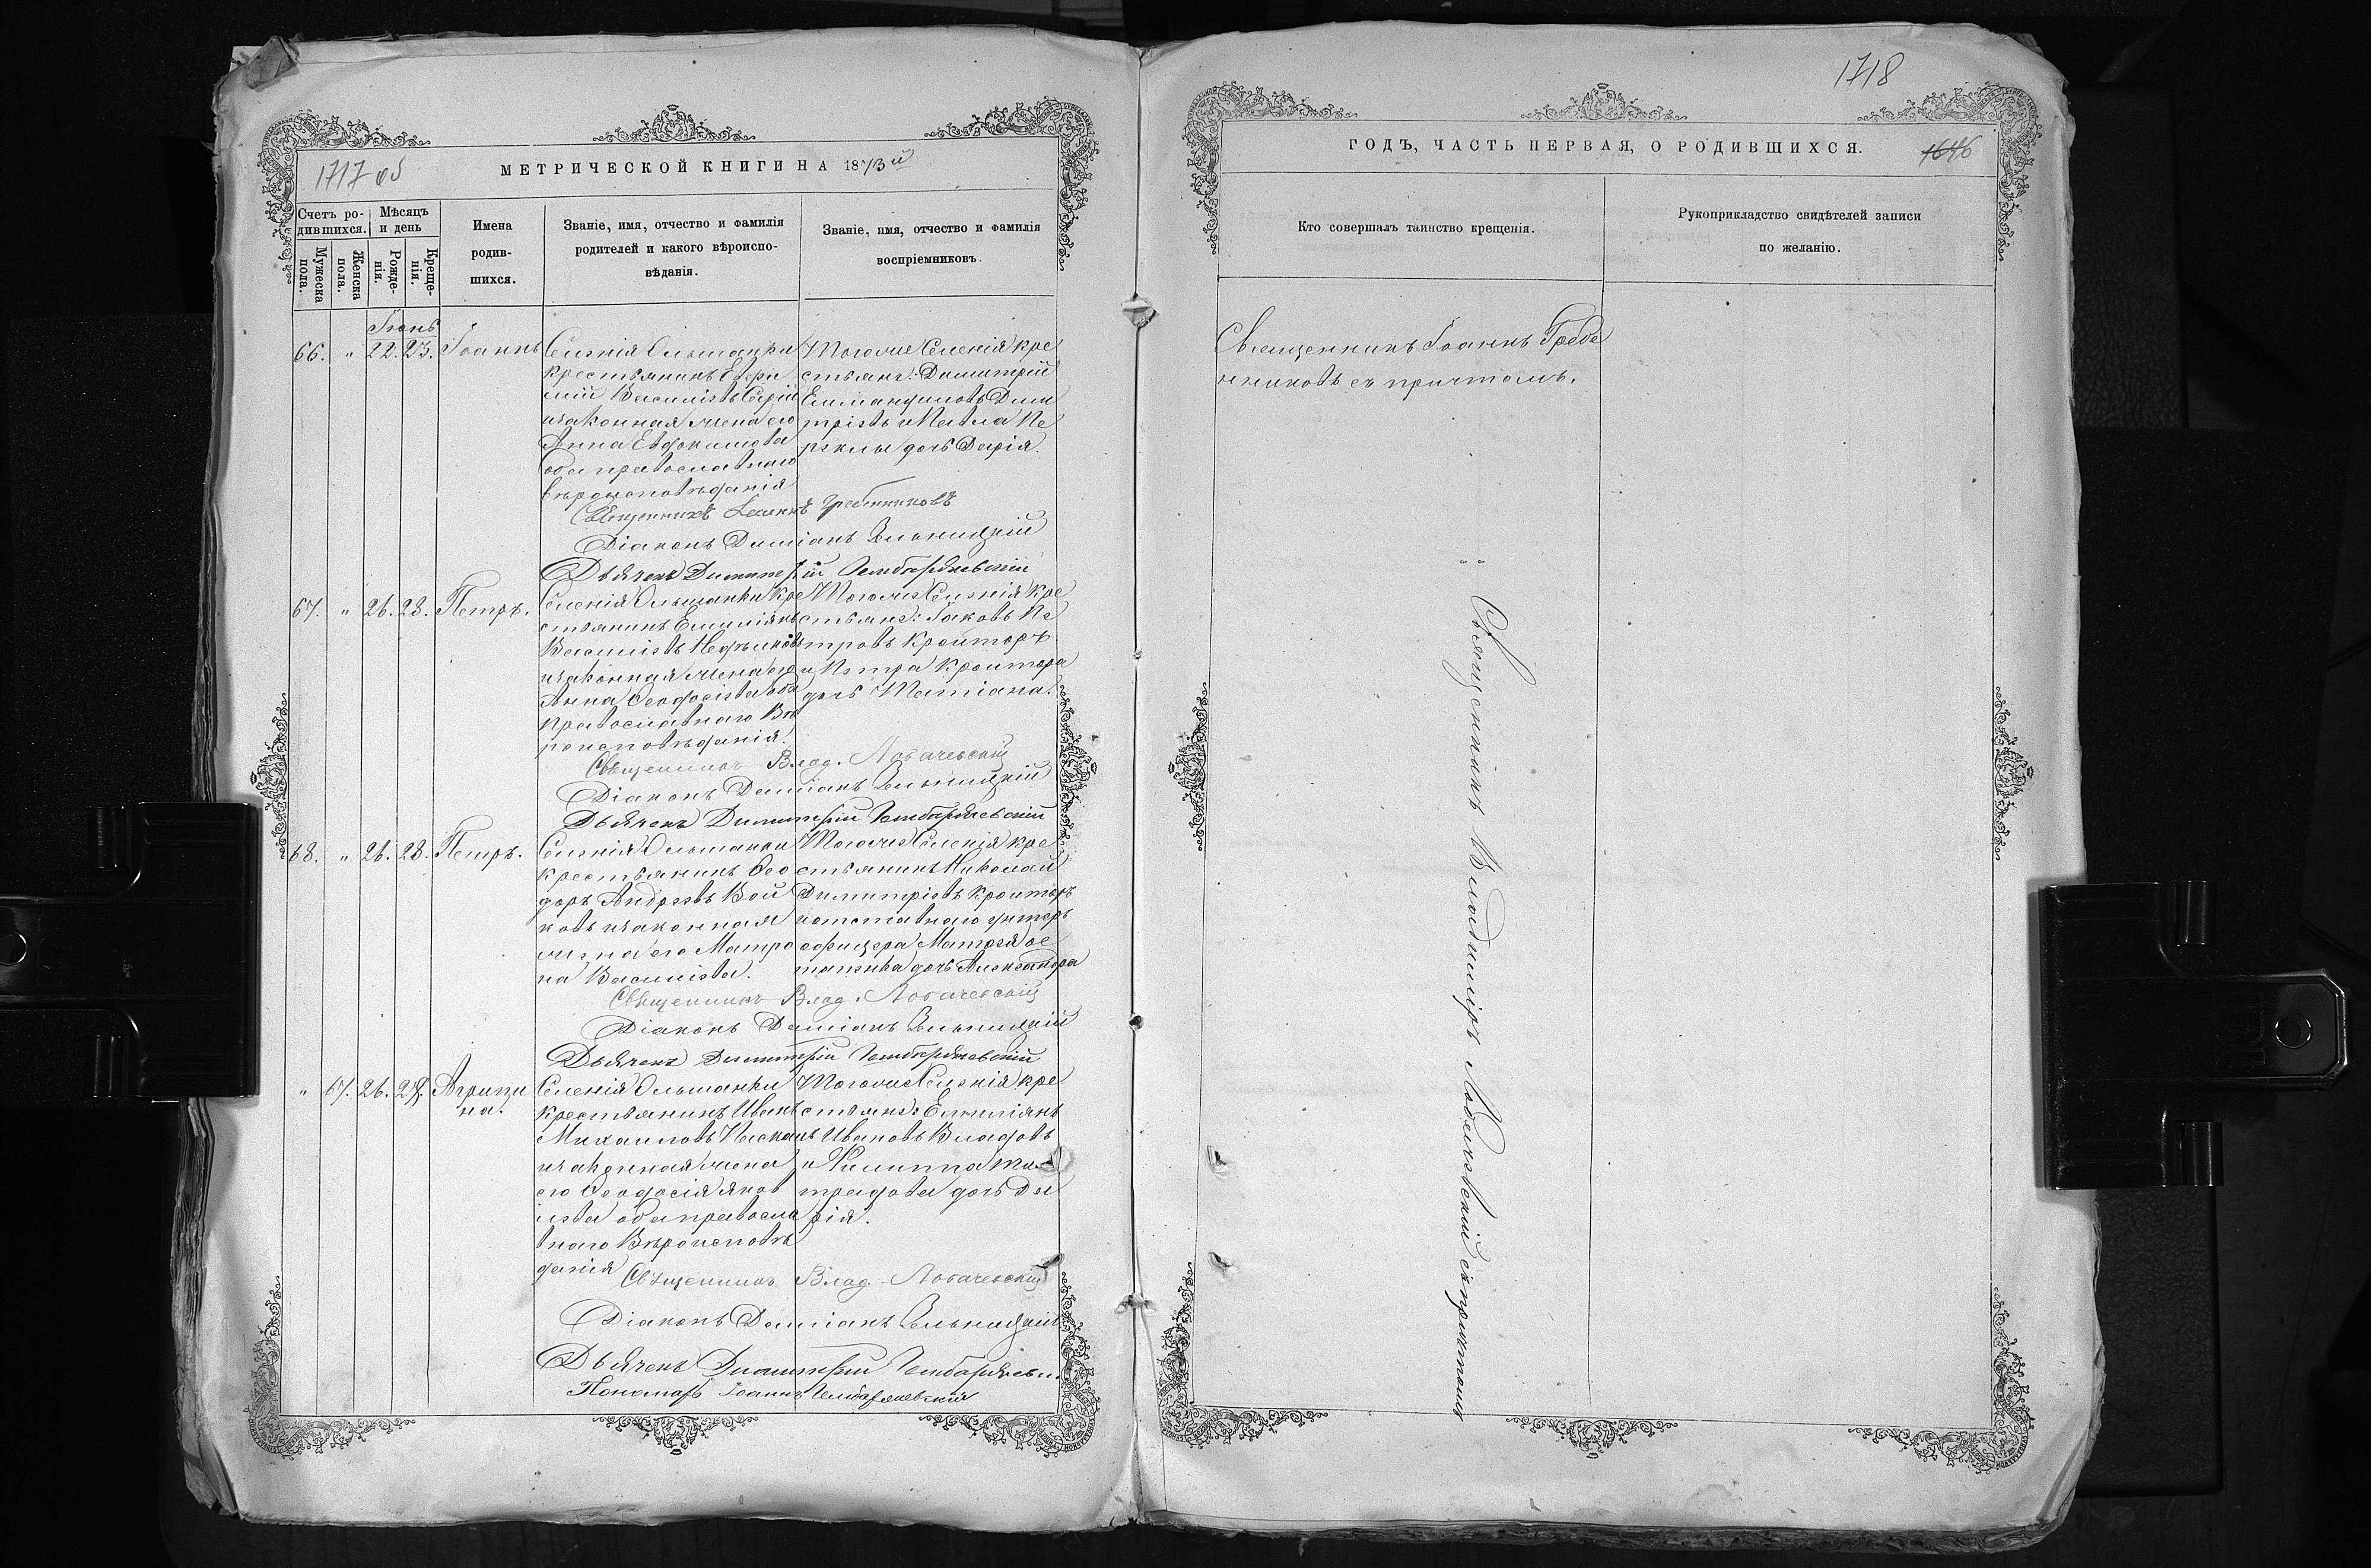 1717 об
МЕТРИЧЕСКОЙ КНИГИ НА 1873й
Счетъ родившихся.
Мѣсяцъ и день
Мужеска пола.
Женска пола.
Рожденія.
Крещенія.
Имена родившихся.
Званіе, имя, отчество и фамилія родителей и какого вѣроисповѣданія.
Званіе, имя, отчество и фамилія воспріемниковъ.
Іюнь
66. " 22. 23. Іоаннъ
Селенія Ольшанки
крестьянинъ Ефи
мій Василіевъ
и законная жена его
Анна Евдокимова
оба православнаго
вѣроисповѣданія
Тогоже Селенія кре
стьяне: Димитрій
Дми
тріевъ и Павла
дочь Дарія.
Священникъ Іоаннъ Гребенниковъ
Діаконъ Даміанъ
Дьячекъ Димитрій
67. " 26. 28. Петръ.
Селенія Ольшанки кре
стьянинъ Емиліанъ
Василіевъ
и законная жена его
Анна Ѳеодосіева оба
православнаго Вѣ
роисповѣданія.
Тогоже Селенія кре
стьяне: Іаковъ Пе
тровъ Кроиторъ
и Петра Кроитора
дочь Татіана.
Священникъ Влад. Лобачевскій
Діаконъ Даміанъ
Дьячекъ Димитрій
68. " 26. 28. Петръ.
Селенія Ольшанки
крестьянинъ Ѳео
доръ Андреевъ Вой
ковъ и законная
жена его Матро
на Василіева.
Тогоже Селенія кре
стьянинъ Николай
Димитріевъ Кроиторъ
и отставнаго унтеръ
офицера Матѳея
дочь Александра
Священникъ Влад. Лобачевскій
Діаконъ Даміанъ
Дьячекъ Димитрій
" 67. 26. 28. Агрипи
на.
Селенія Ольшанки
крестьянинъ Иванъ
Михаиловъ
и законная жена
его Ѳеодосія Яков
лева оба правосла
внаго Вѣроисповѣ
данія
Тогоже Селенія кре
стьяне: Емиліанъ
Ивановъ Владовъ
и Филиппа
дочь Да
рія.
Священникъ Влад. Лобачевскій
Діаконъ Даміанъ
Дьячекъ Димитрій
Пономарь Іоаннъ
1718
ГОДЪ, ЧАСТЬ ПЕРВАЯ, О РОДИВШИХСЯ.
1646
Кто совершалъ таинство крещенія.
Рукоприкладство свидѣтелей записи
по желанію.
Священникъ Іоаннъ Гребе
нниковъ съ причтомъ.
Священникъ Владиміръ Лобачевскій съ причтомъ